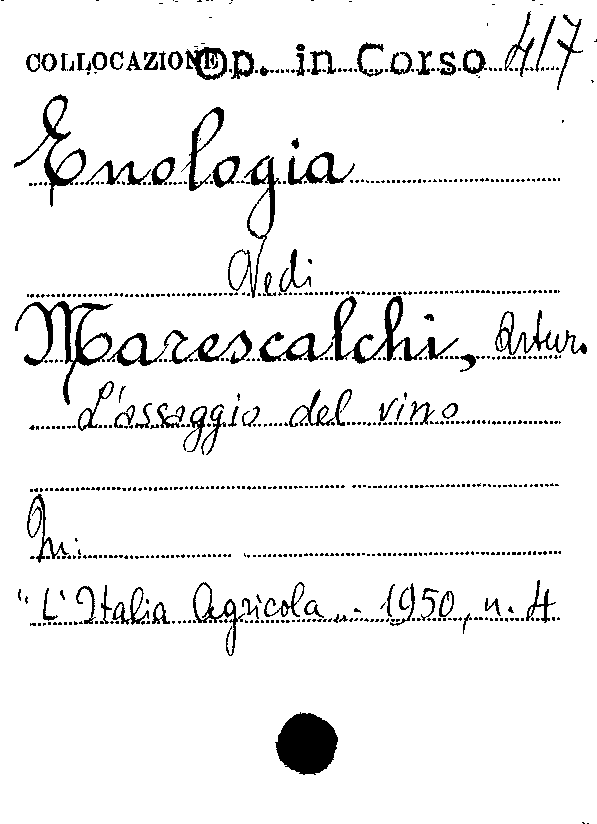 COLLOCAZIONE Op. in Corso 417
Enologia
Vedi
Marescalchi, Artur.
L'assaggio del vino
In:
"L'Italia Agricola". 1950, n. 4